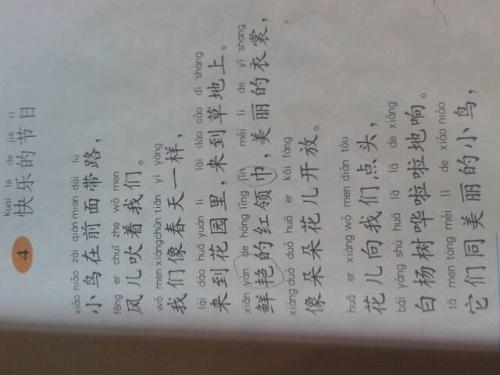 4
kuài lè de jié rì
快乐的节日
xiǎo niǎo zài qián miàn dài lù
小鸟在前面带路，
fēng er chuī zhe wǒ men
风儿吹着我们。
wǒ men xiàng chūn tiān yí yàng
我们像春天一样，
lái dào huā yuán lǐ lái dào cǎo dì shàng
来到花园里，来到草地上。
xiān yàn de hóng lǐng jīn měi lì de yī shang
鲜艳的红领巾，美丽的衣裳，
xiàng duǒ duǒ huā er kāi fàng
像朵朵花儿开放。
huā er xiàng wǒ men diǎn tóu
花儿向我们点头，
bái yáng shù huā lā lā de xiǎng
白杨树哗啦啦地响。
tā men tóng měi lì de xiǎo niǎo
它们同美丽的小鸟，